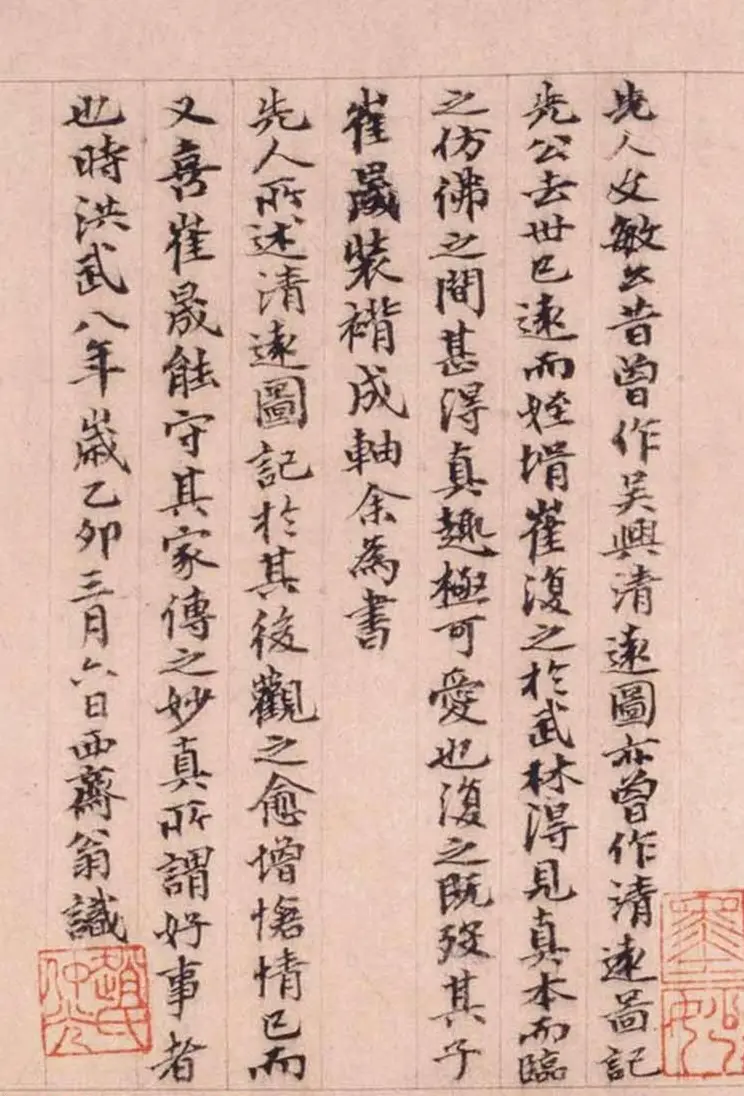 先人文敏公昔曾作吴興清遠圖亦曾作清遠啚記
先公去世已遠而姪壻崔復之於武林得見真本而臨
之仿佛之間甚得真趣極可愛也復之既歿其子
崔晟裝褙成軸余為書
先人所述清遠圖記於其後觀之愈增愴情已而
又喜崔晟能守其家傳之妙真所謂好事者
也時洪武八年歲乙卯三月六日西齋翁識
趙氏仲光